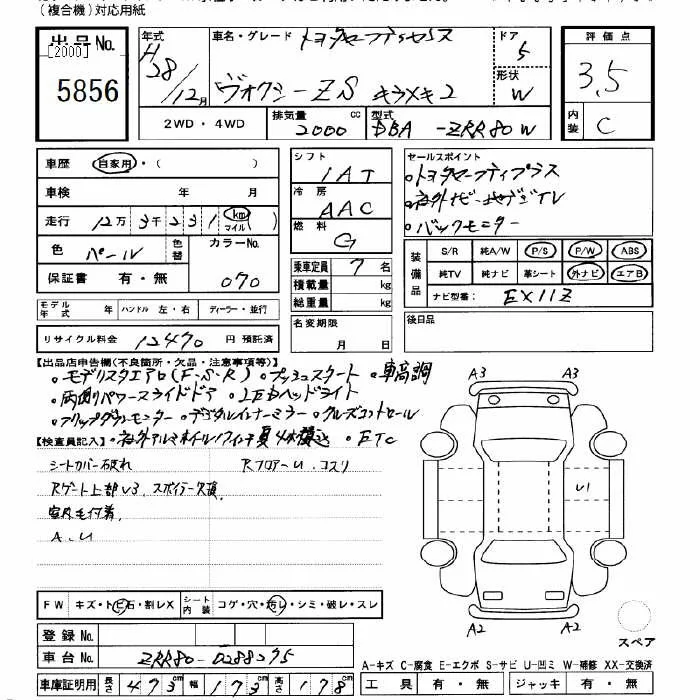 (複合機)対応用紙
出品No.
[2000]
5856
年式
H28/12月
車名・グレード
トヨタセーフティセンス
ヴォクシーZS キラメキ2
ドア
5
形状
W
評価点
3.5
内装
C
2WD・4WD
排気量
2000 cc
型式
DBA -ZRR80W
車歴 自家用・( )
車検 年 月
走行 12万 3千 2 3 1 km マイル
色 パール 色替 カラーNo. 070
保証書 有・無
モデル年式 年 ハンドル 左・右 ディーラー・並行
リサイクル料金 12470 円 預託済
シフト
1AT
冷房
AAC
燃料
G
乗車定員 7 名
積載量 kg
総重量 kg
名変期限
月 日
セールスポイント
・トヨタセーフティプラス
・社外ナビ・地デジTV
・バックモニター
装備品
S/R 純A/W P/S P/W ABS
純TV 純ナビ 革シート 外ナビ エアB
ナビ型番: EX11Z
後日品
【出品店申告欄(不良箇所・欠品・注意事項等)】
・モデリスタエアロ(F・S・R) ・プッシュスタート ・車高調
・両側パワースライドドア ・LEDヘッドライト
・フリップダウンモニター ・デジタルインナーミラー ・クルーズコントロール
・社外アルミホイル 夏4本積込 ・ETC
【検査員記入】
シートカバー破れ
Rフロアーu.コスリ
Rゲート上部u3.スポイラー欠損
室内毛付着
A.u
A3 A3
u1
A2 A2
スペア
FW キズ・トビ石・割レX シート内装 コゲ・穴・汚レ・シミ・破レ・スレ
登録No.
車台No. ZRR80-0288275
車庫証明用 長さ 473cm 幅 173cm 高さ 178cm
A-キズ C-腐食 E-エクボ S-サビ U-凹ミ W-補修 XX-交換済
工具 有・無 ジャッキ 有・無